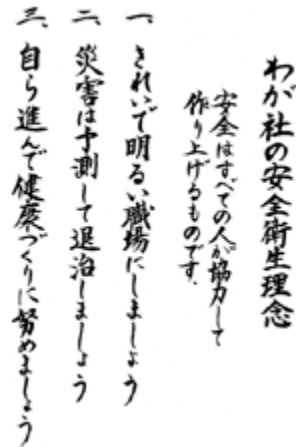 わが社の安全衛生理念
安全はすべての人が協力して
作り上げるものです.
一、きれいで明るい職場にしましょう
二、災害は予測して退治しましょう
三、自ら進んで健康づくりに努めましょう